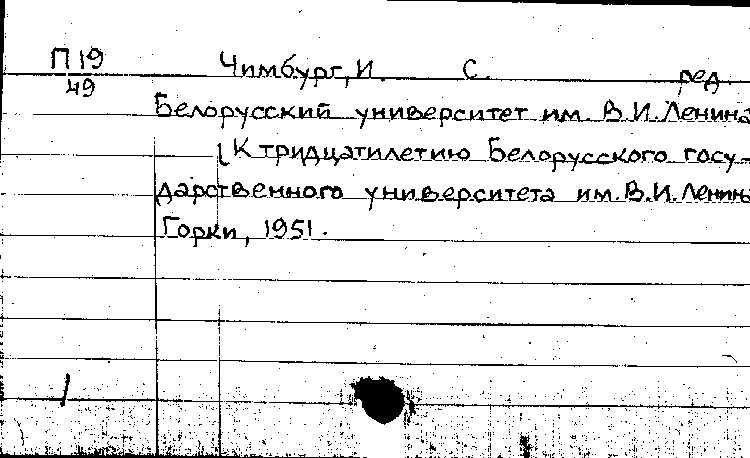 П 19
49
Чимбург, И. С. ред.
Белорусский университет им. В.И. Ленина
[К тридцатилетию Белорусского госу-
дарственного университета им. В.И. Ленина
Горки, 1951.